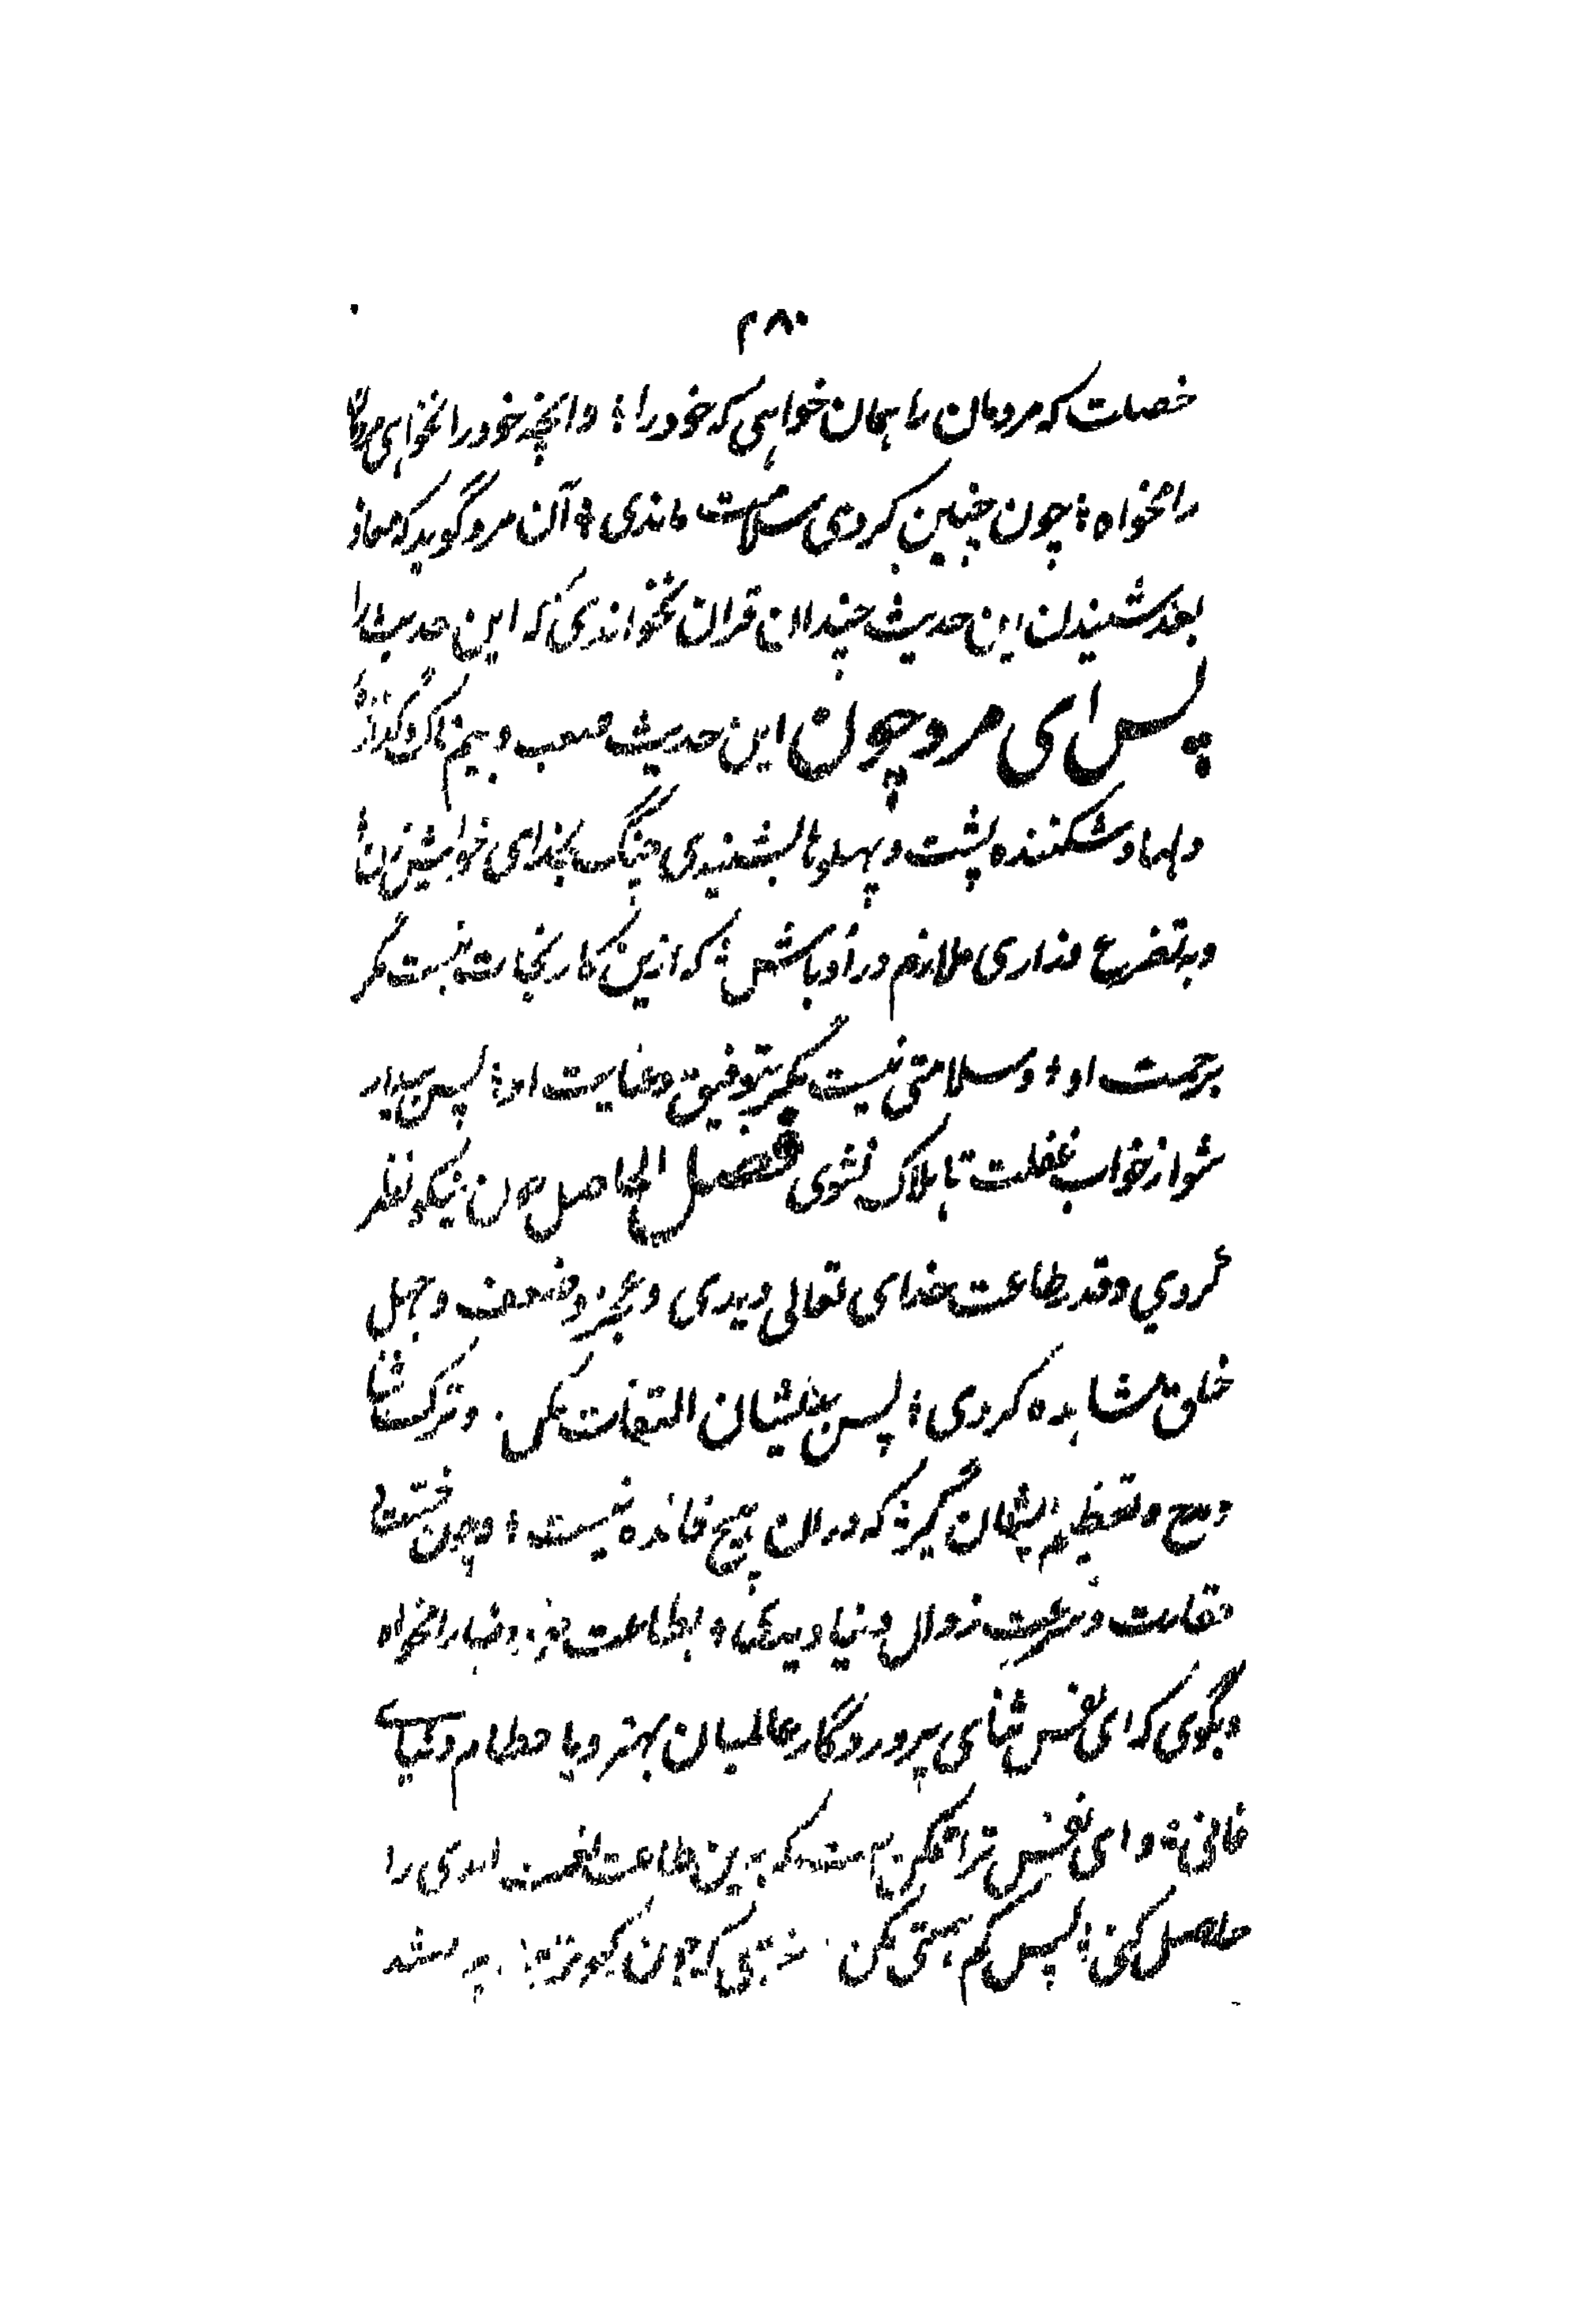 ۲۸۰
خصلت که مردمان را همان خواهی که خود را ؛ وانچه خود را نخواهی مردمان
را نخواه ؛ چون چنین کردی سلامت ماندی ؛ آن مرد گوید که معاذ
بعد شنیدن این حدیث چندان قران نخواندی که این حدیث را
پس ای مرد چون این حدیث صعب و بیم ناک و گدازنده
دلها و شکننده پشت و پهلوها بشنیدی چنگ بخدای خویش زن
و به تضرع و زاری ملازم در او باش ؛ که ازین کار نجات نیست مگر
برحمت او ؛ و سلامتی نیست مگر بتوفیق و عنایت او ؛ پس بیدار
شو از خواب غفلت تا هلاک نشوی فصل الحاصل چون نیکو نظر
کردي و قدر طاعت خدای تعالی دیدی و عجز و ضعف و جهل
خلق مشاهده کردی ؛ پس بدیشان التفات مکن . و ترک ثنا
و مدح و تعظیم ایشان گیر ؛ که در ان هیچ فائده نیست ؛ و چون خست
حقارت و سرعت زوال دنیا دیدی ؛ بطاعت دنیا را مخواه
و بگوی که ای نفس ثنای پروردگار عالمیان بهتر و یا حطام دنیای
فانی ؛ و ای نفس ترا ممکن است که بدین طاعت نعمت ابدی را
حاصل کنی ؛ پس کم همتی مکن . که چون کبوتر